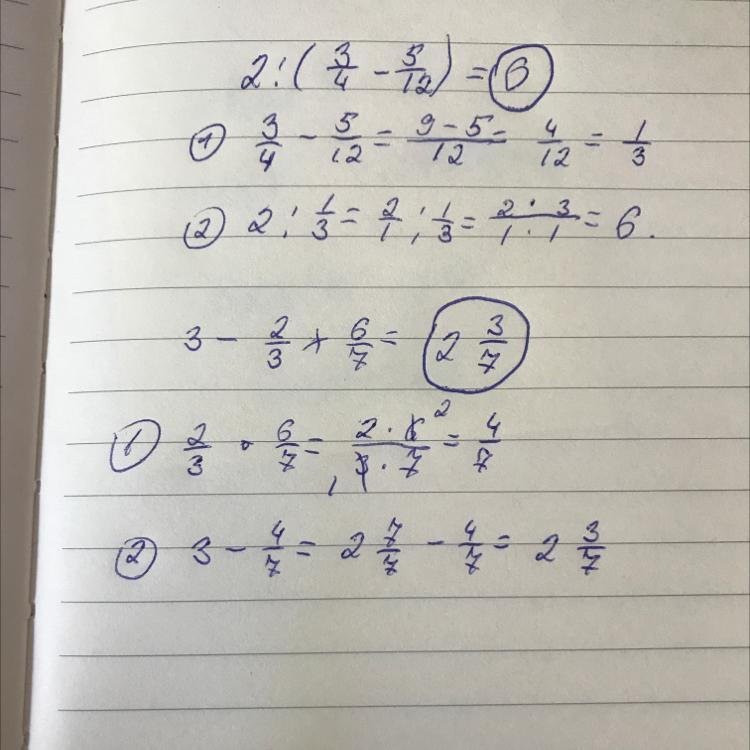 2 : ( 3/4 - 5/12 ) = 6
① 3/4 - 5/12 = 9-5/12 = 4/12 = 1/3
② 2 : 1/3 = 2/1 : 1/3 = 2 · 3/1 · 1 = 6.
3 - 2/3 × 6/7 = 2 3/7
① 2/3 · 6/7 = 2 · 6²/₁3 · 7 = 4/7
② 3 - 4/7 = 2 7/7 - 4/7 = 2 3/7